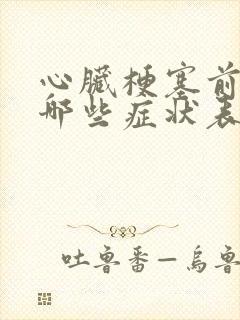 心臟梗塞前
哪些症狀表
吐魯番—烏魯